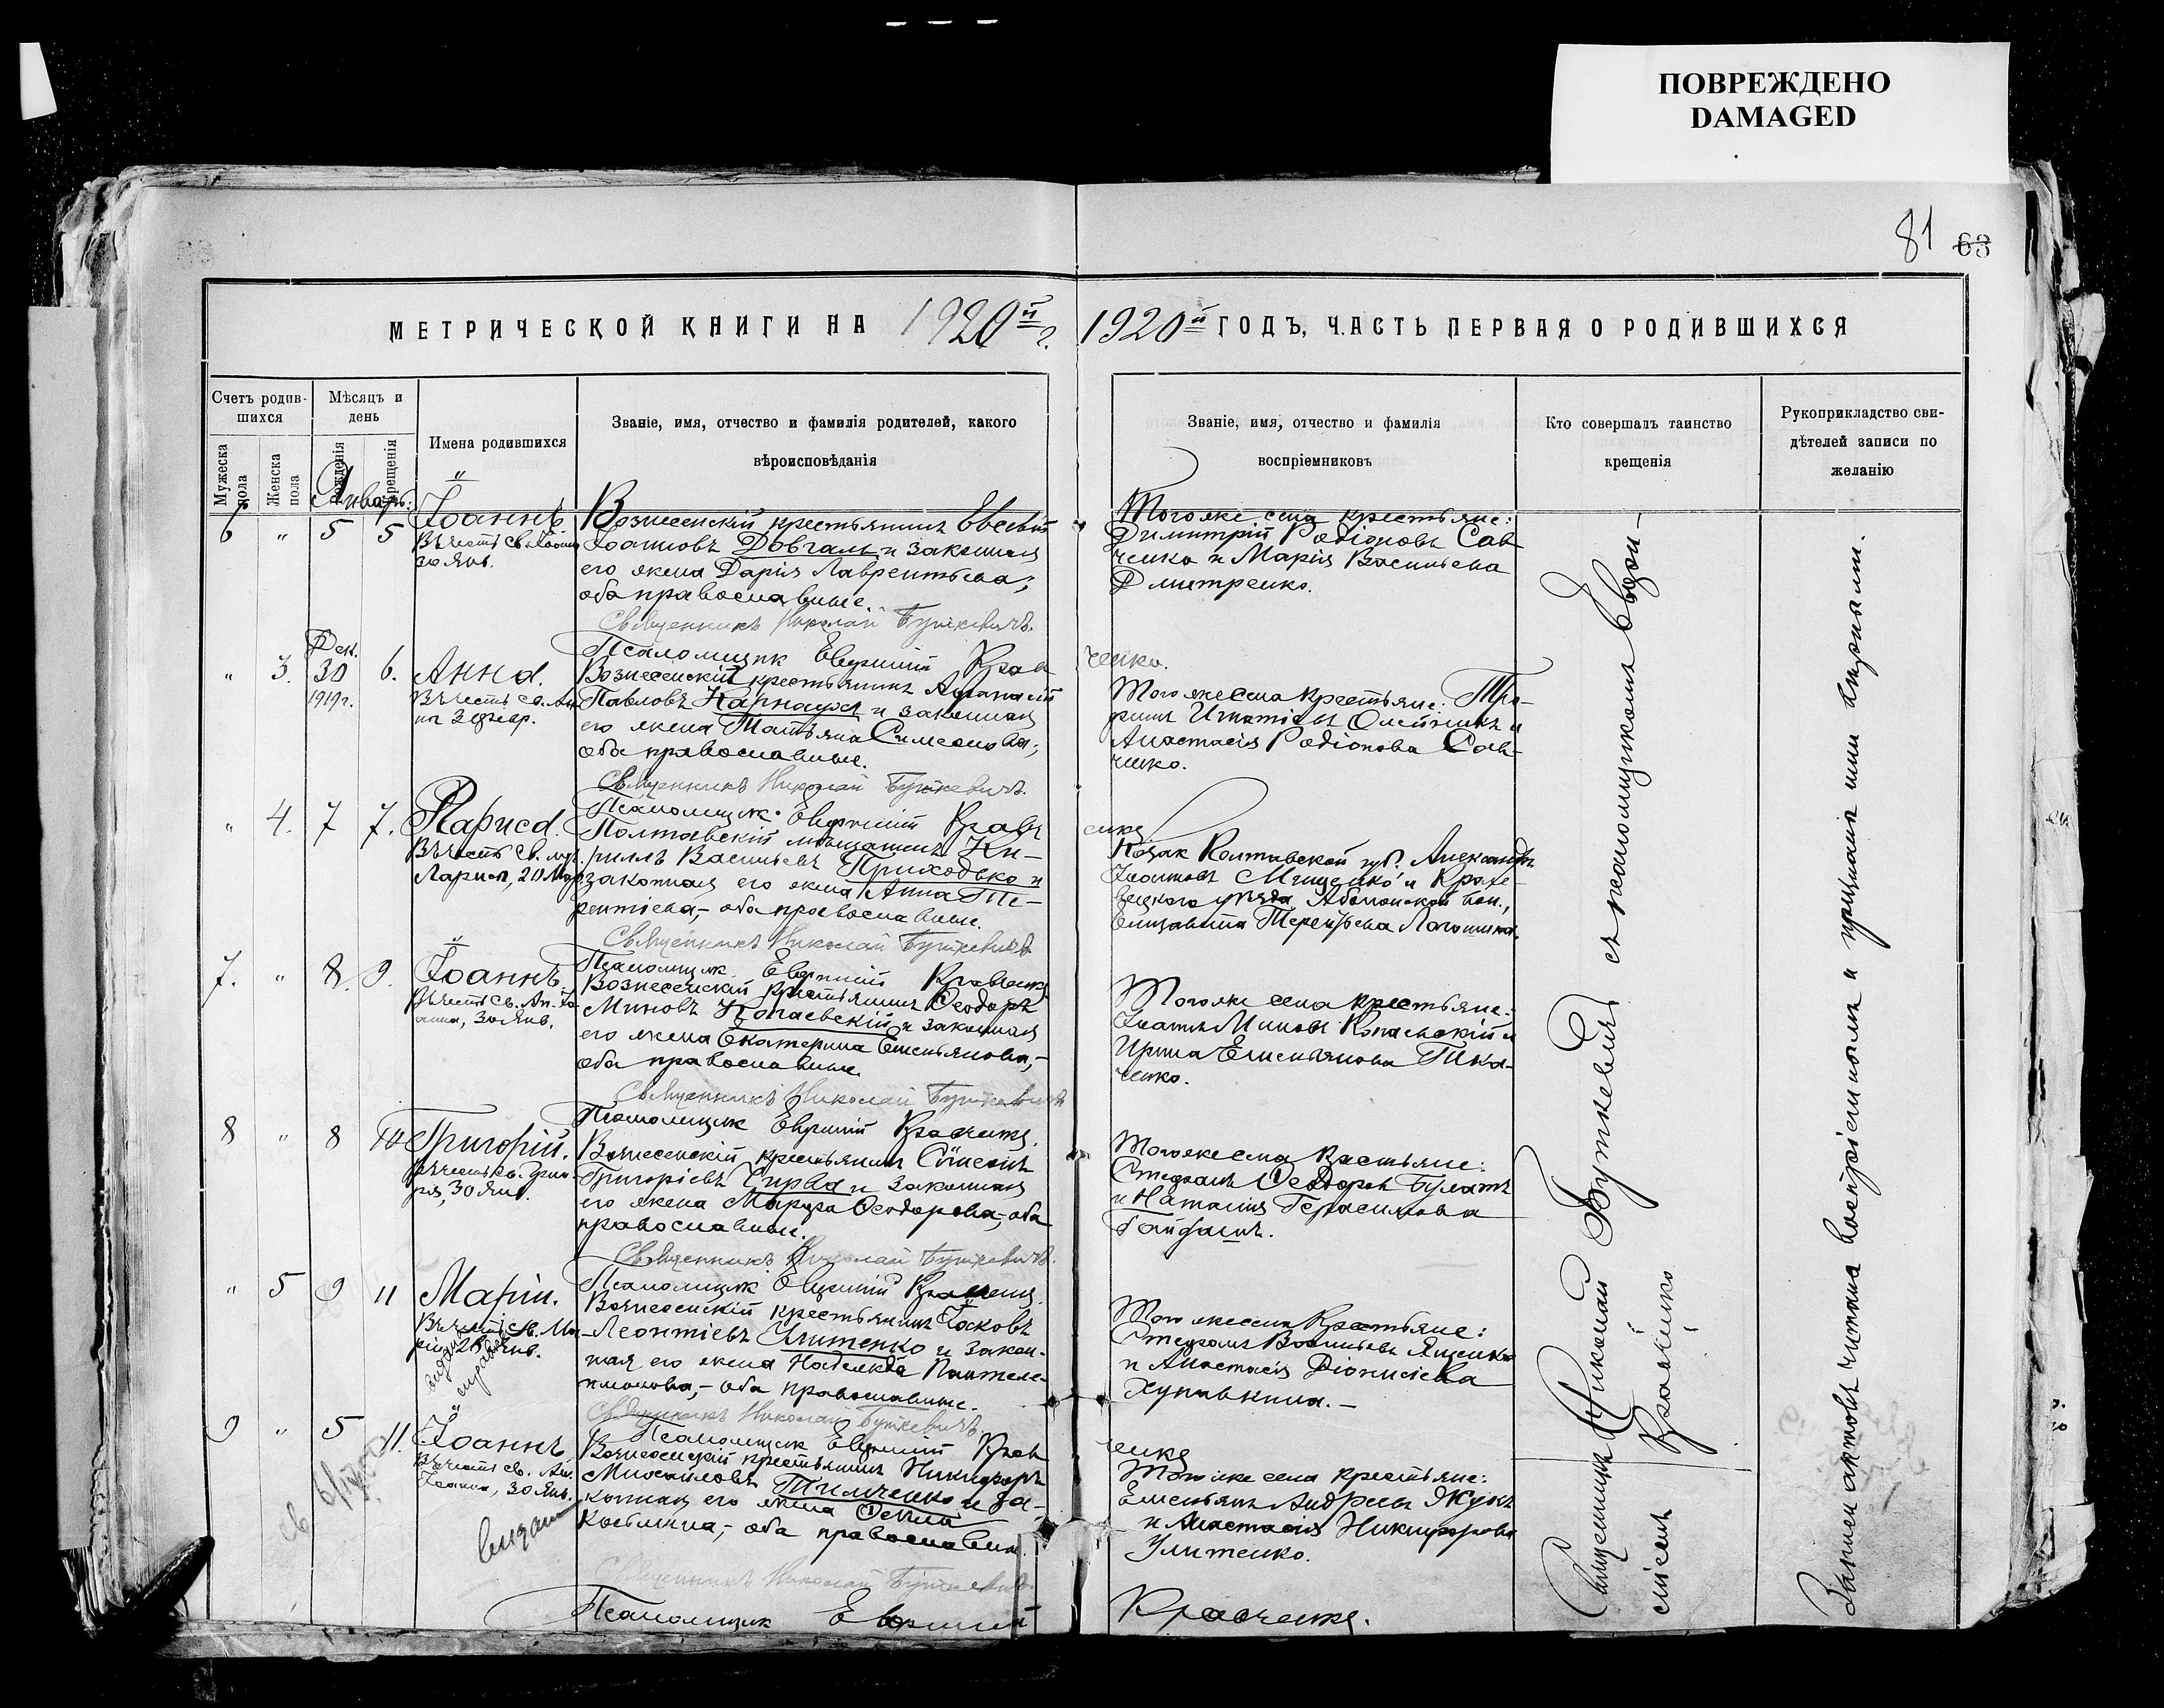 ПОВРЕЖДЕНО
DAMAGED
81 63
МЕТРИЧЕСКОЙ КНИГИ НА 1920й г.
1920й ГОДЪ, ЧАСТЬ ПЕРВАЯ О РОДИВШИХСЯ
Счетъ родив-
шихся
Мужеска
пола
Женска
пола
Мѣсяцъ и
день
рожденія
крещенія
Имена родившихся
Званіе, имя, отчество и фамилія родителей, какого
вѣроисповѣданія
Званіе, имя, отчество и фамилія
воспріемниковъ
Кто совершалъ таинство
крещенія
Рукоприкладство сви-
дѣтелей записи по
желанію
Январь.
6 " 5 5
Іоаннъ
Въ честь св. Іоанна
30 Янв.
Вознесенскій крестьянинъ Евсевій
Іоанновъ Довгаль и законная
его жена Дарія Лаврентьева;
оба православные.
Священникъ Николай Буткевичъ.
Псаломщик Евфимій Кравченко.
Того же села крестьяне:
Димитрій Родіоновъ Сав
ченко и Марія Васильева
Дмитренко.
" 3. Дек. 30 1919г. 6.
Анна.
Въ честь св. Ан-
ны 3 февр.
Вознесенскій крестьянинъ Афанасій
Павловъ Карнаухъ и законная
его жена Татьяна Симеонова;
оба православные.
Священникъ Николай Буткевичъ.
Псаломщик Евфимій Кравченко
Того же села крестьяне: Тро-
фимъ Игнатіевъ Олейникъ и
Анастасія Родіонова Сав-
ченко.
" 4. 7 7.
Лариса.
Въ честь св. муч.
Ларисы, 20 Мар.
Полтавскій мѣщанинъ Ки-
риллъ Васильевъ Приходько и
законная его жена Анна Те-
рентіева,- оба православные.
Священникъ Николай Буткевичъ
Псаломщик Евфимій Кравченко
Козак Полтавской губ. Александръ
Іоанновъ Мищенко и
уѣзда вол.,
Елизавета Терентьева
7. " 8. 9.
Іоаннъ.
Въ честь св. Ап. Іо
анна, 30 Янв.
Вознесенскій крестьянинъ Ѳеодоръ
Миновъ Копаевскій и законная
его жена Екатерина Емельянова,-
оба православные.
Священникъ Николай Буткевичъ
Псаломщик Евфимій Кравченко.
Того же села крестьяне:
Іоаннъ Миновъ Копаевскій и
Ирина Емельянова Тка-
ченко.
8 " 8 10
Григорій.
Въ честь св. Григо-
рія, 30 Янв.
Вознесенскій крестьянинъ Симеонъ
Григоріевъ Сирва и законная
его жена Марфа Ѳеодорова,- оба
православные.
Священникъ Николай Буткевичъ.
Псаломщик Евфимій Кравченко.
Того же села крестьяне:
Стефанъ Ѳеодоровъ Булатъ
и Наталія Герасимова
Гайдашъ.
" 5 9 11
Марія.
Въ честь св. Ма-
ріи, 26 Янв.
Вознесенскій крестьянинъ Іаковъ
Леонтіевъ Улитенко и закон-
ная его жена Надежда Пантеле-
имонова,- оба православные.
Священникъ Николай Буткевичъ
Псаломщик Евфимій Кравченко
Того же села крестьяне:
Стефанъ Васильевъ Яценко
и Анастасія Діонисіева
9 " 5 11.
Іоаннъ
Въ честь св. Ап.
Іоанна, 30 Янв.
Вознесенскій крестьянинъ Никифоръ
Михайловъ Тимченко и за-
конная его жена Ѳекла
Косьмина,- оба православные.
выдана
Священникъ Николай Буткевичъ.
Псаломщик Евфимій
Кравченко.
Того же села крестьяне:
Емельянъ Андреевъ Жукъ
и Анастасія Никифорова
Улитенко.
Священникъ Николай Буткевичъ съ псаломщикомъ Евфи-
міемъ Кравченко
Записи актовъ читаны воспріемникамъ и признаны ими вѣрными.